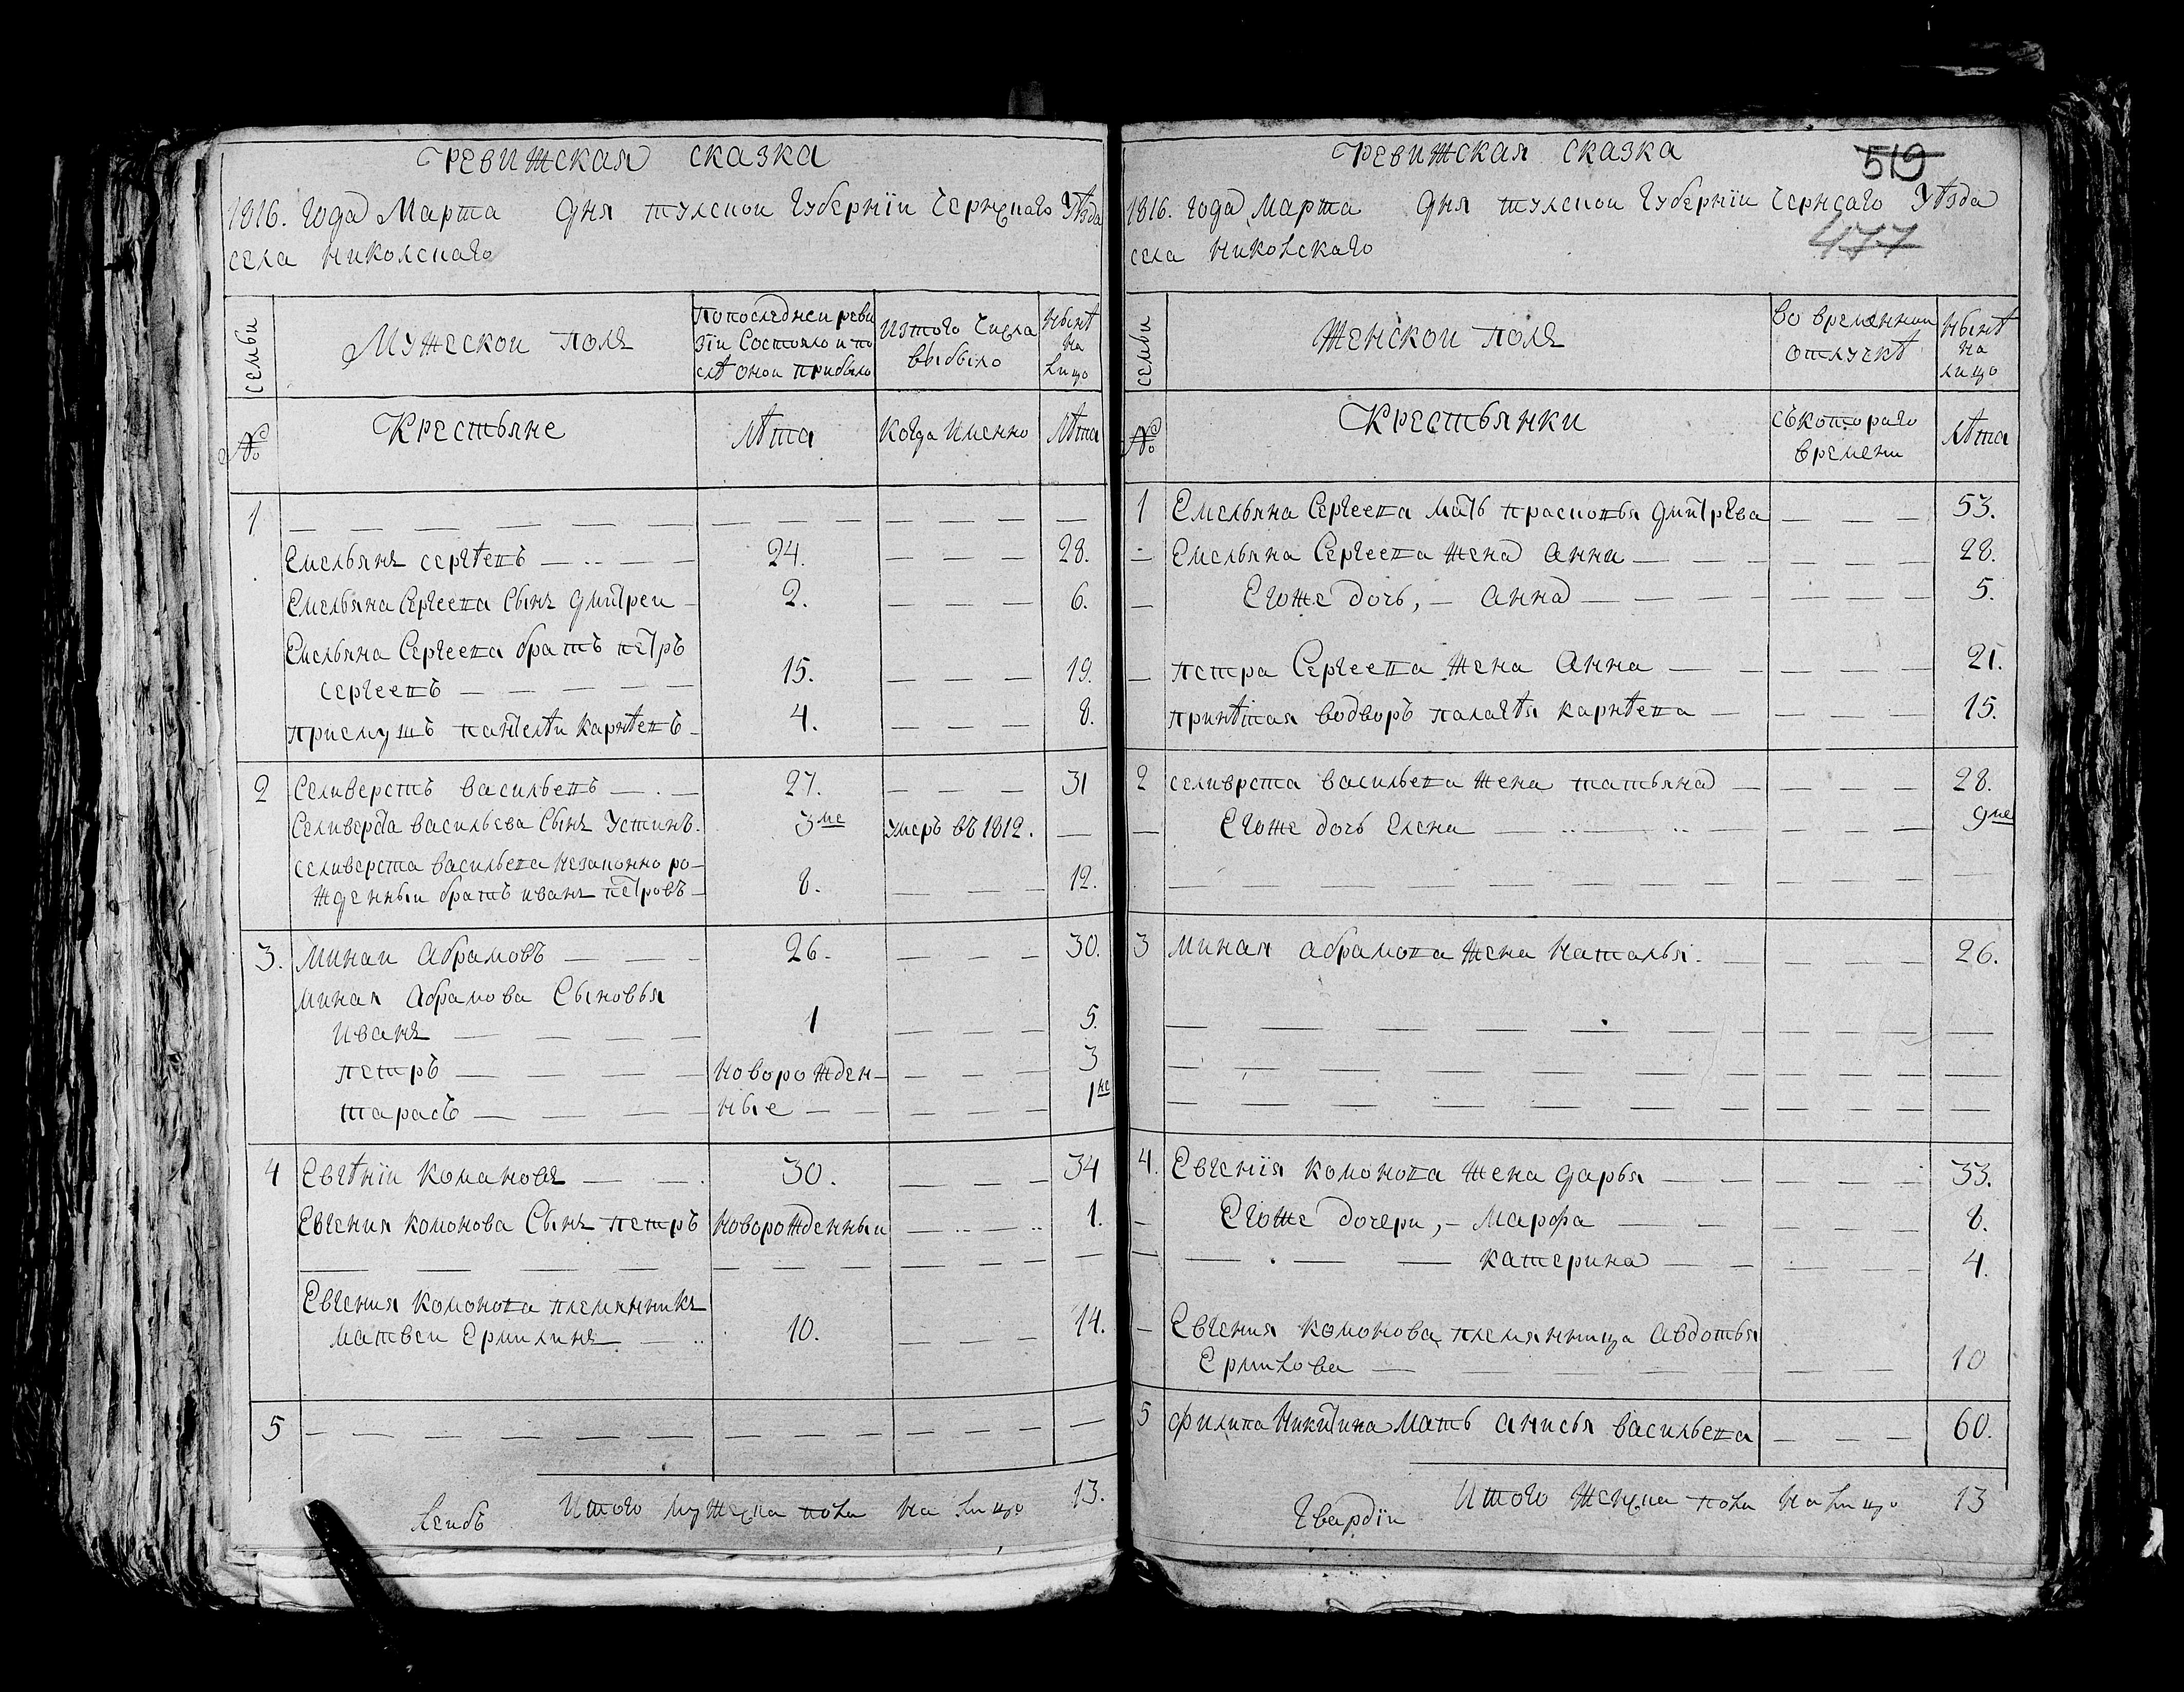 Ревижская сказка
1816. года Марта дня тулской губернїи Чернскаго Уѣзда
села николскаго
семьи
Мужескои поля
попоследнеи реви
зїи Состояло и по
слѣ онои прибыло
изтого Числа
выбыло
Нынѣ
на
лицо
№
Крестьяне
лѣта
Когда Именно
лѣта
1 — — — — — — — — — —
Емельянъ сергѣевъ — — — 24. — — — 28.
Емельяна Сергеева Сынъ дмитреи — 2. — — — 6.
Емельяна Сергеева братъ петръ
сергеевъ — — — — 15. — — — 19.
приемушъ пантелѣи карнѣевъ — 4. — — — 8.
2 Селиверстъ васильевъ — — 27. — — — 31
Селиверста васильева Сынъ Устинъ. 3 ме умеръ въ 1812. —
селиверста васильева незаконно ро-
жденныи братъ иванъ петровъ — 8. — — — 12.
3. Минаи Абрамовъ — — — 26. — — — 30.
миная Абрамова Сыновья
иванъ — — — — 1 — — — 5.
петръ — — — — новорожден- — — — 3
тарасъ — — — — ные — — — — 1 не
4 Евгѣнїи Комановъ — — 30. — — — 34
Евгения комонова Сынъ петръ новорожденныи — — — 1.
— — — — — — — — — —
Евгения комонова племянникъ
матвеи Ермилинъ — — 10. — — — 14.
5 — — — — — — — — — —
Итого мужеска пола на лицо 13.
Лейбъ
Ревижская сказка
519
1816. года марта дня тулскои губернїи Чернсаго Уѣзда
477
села николскаго
семьи
Женскои поля
во временнои
отлучкѣ
нынѣ
на
лицо
№
Крестьянки
съкотораго
времени
лѣта
1 Емельяна Сергеева мать прасковья дмитрева — — — 53.
— Емельяна Сергеева жена анна — — — — — 28.
— Егоже дочь, — анна — — — — — — 5.
— петра Сергеева жена Анна — — — — — 21.
принѣтая водворъ палагѣя карнѣева — — — — 15.
2 селиврста васильева жена татьяна — — — — 28.
— Егоже дочь Елена — — — — — — 9 ме
— — — — — — — — — —
3 миная абрамова жена наталья. — — — — 26.
— — — — — — — — — —
— — — — — — — — — —
— — — — — — — — — —
4. Евгенїя комонова жена дарья — — — — — 33.
— Егоже дочери, — Марфа — — — — — 8.
— — — — катерина — — — — — 4.
— Евгения комонова племянница авдотья
Ермилова — — — — — — 10
5 филипа Никитина Мать анисья васильева — — — 60.
Итого женска пола на лицо 13
Гвардїи